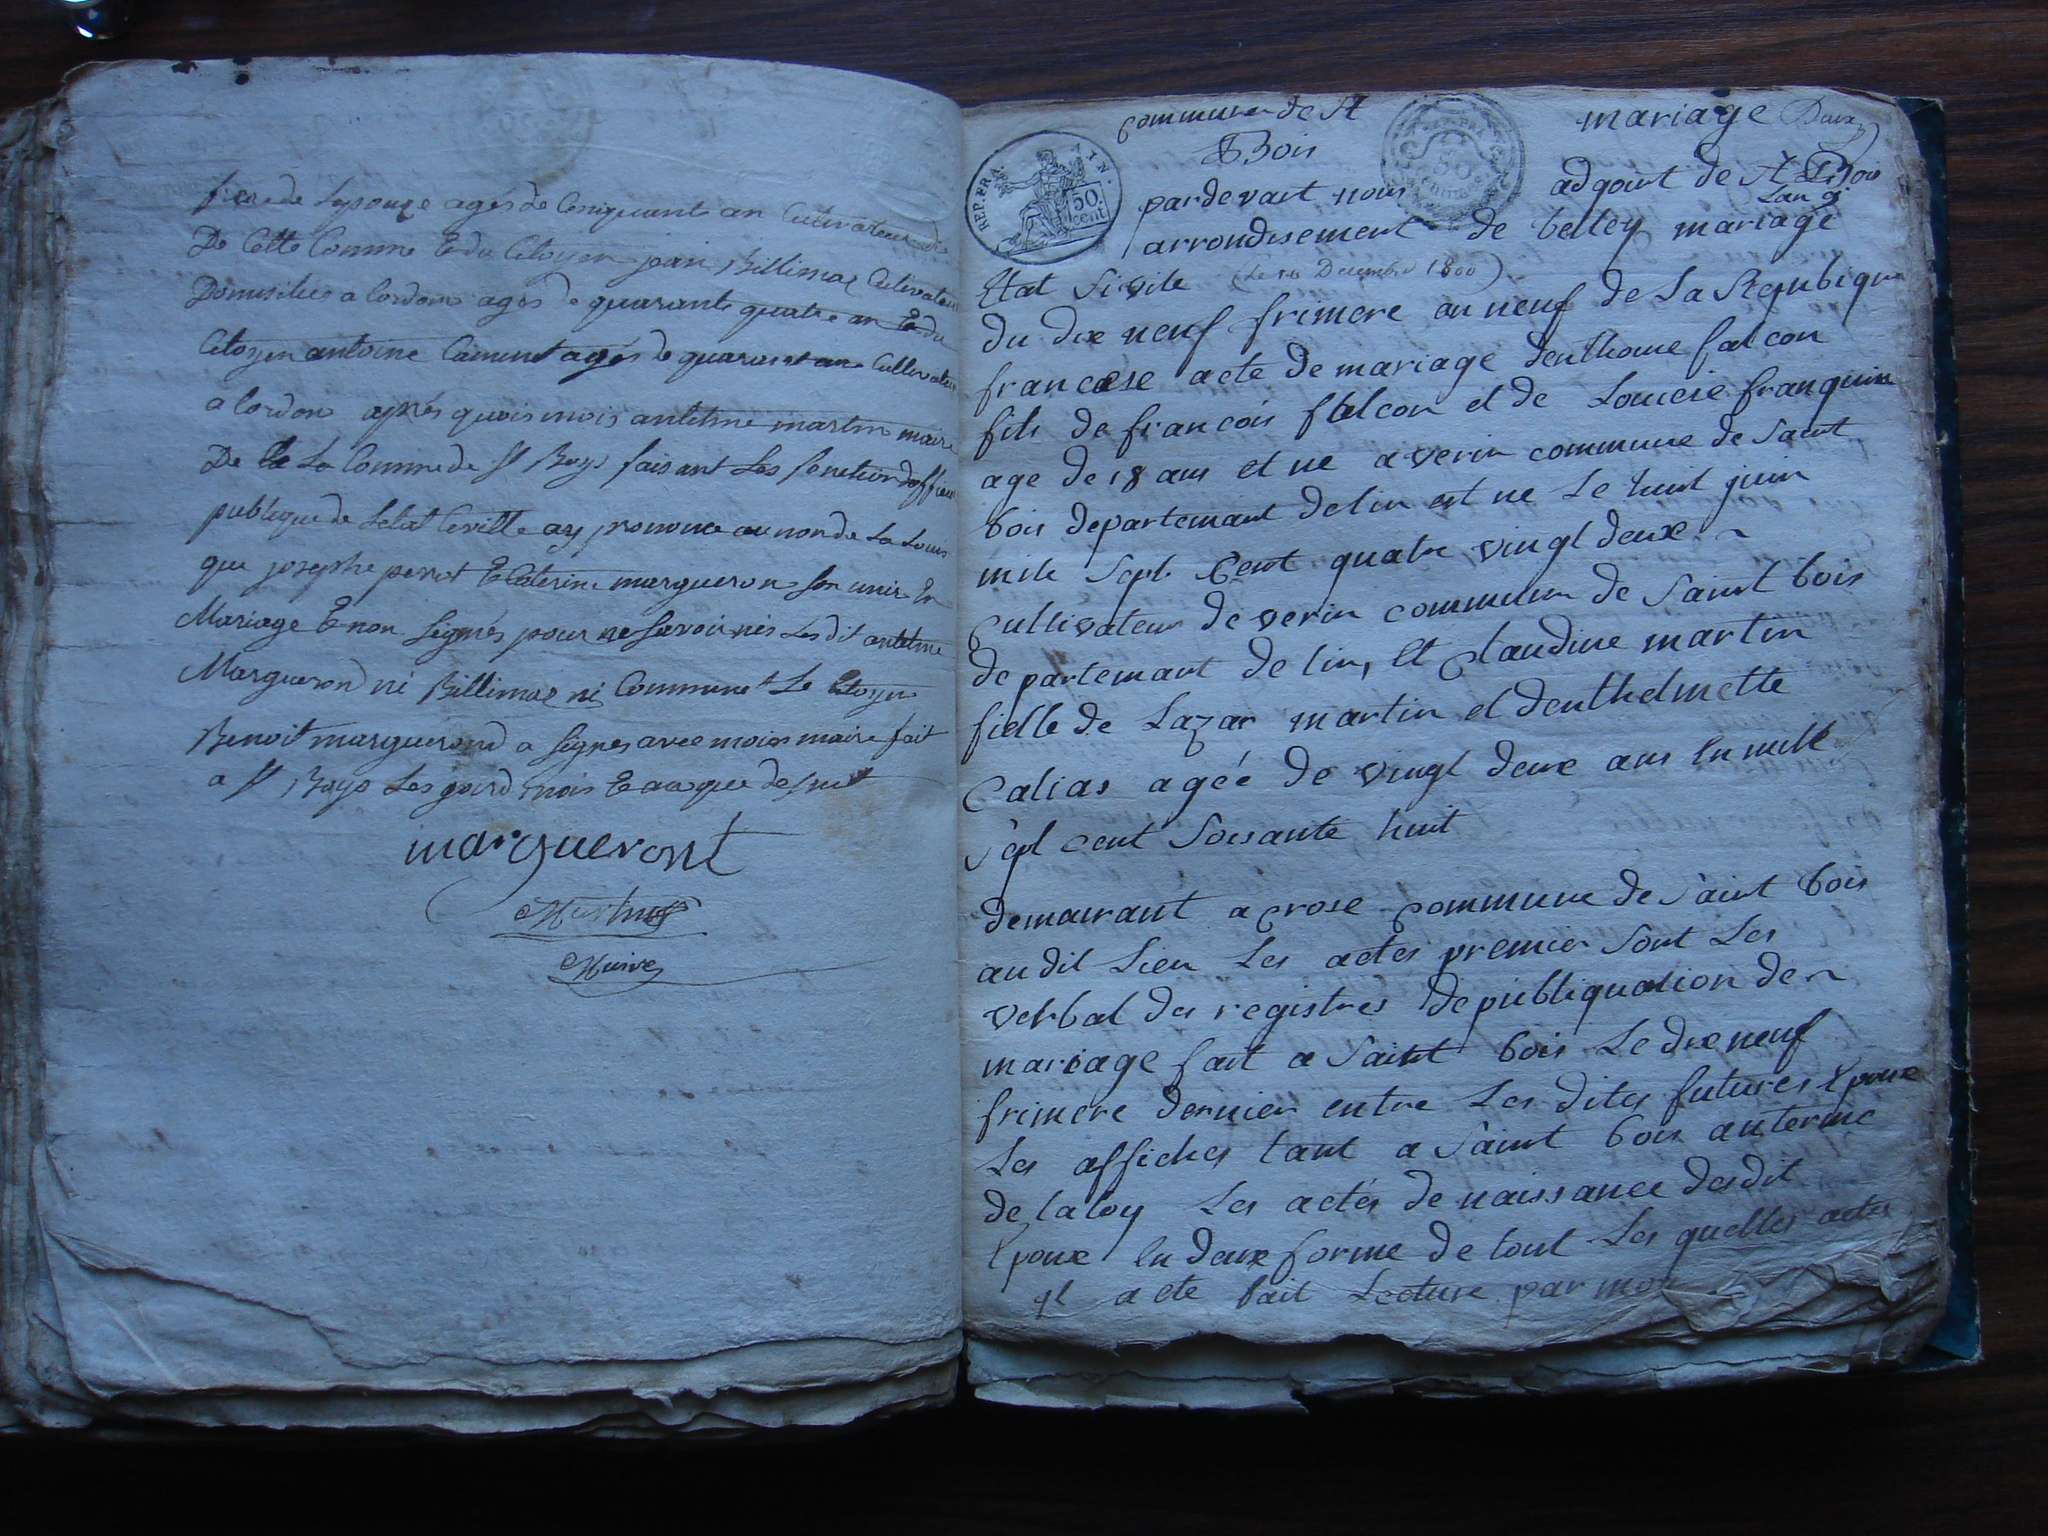 frere de Lepouze agés de Cinquante an Cultivateur
De Cette Comune & du Citoyen jean Billimaz Cultivateur
Domicilies a Cordons agés de quarante quatre an & du
Citoyen antoine agés de quarante an Cultivateur
a Cordons après quois mois antelme martin maire
De La Comune de St Boys faisant Les fonction dofficier
publique de Letat Civille ay prononce au non de La Louis
que josephe perrot & Caterine marguerons son unis En
Mariage & non Signés pour ne Savoir nis Les dit antelme
Marguerond ni Billimaz ni Le Citoyen
Benoit marguerond a Signés avec mois maire fait
a St Boys Les jourd mois & an que desus
margueront
Martin
Maire
commune de St mariage
Bois
REP. FRA. 50 cent. AIN.
50
par devait nous adgoint de St Bois
Lan 9
arrondisement de belley mariage
Etat Sivile (Le 10 Decembre 1800)
du dix neuf frimere an neuf de La Repubique
francaise acte de mariage denthome falcon
fils de francois falcon et de Louiese franquin
age de 18 ans et ne a verin commune de Saint
bois departemant delin est ne Le huit juin
mile Sept Cent quatre vingt deux
Cultivateur de verin commune de Saint bois
departemant de lin, et Claudine martin
fielle de Lazar martin et denthelmette
Calias agéé de vingt deux ans En mille
Sept cent Soisante huit
demaurant a crose Commune de Saint bois
audit Lieu Les actes premier Sont Les
verbal des registres de publiquation de
mariage fait a Saint bois Le dix neuf
frimere dernier entre Les dites futures Epoux
Les affiches tant a Saint bois auterme
de la loy Les actés de naissance desdit
Epoux En deux forme de tout Les quelles actes
et acte fait Lecture par moi